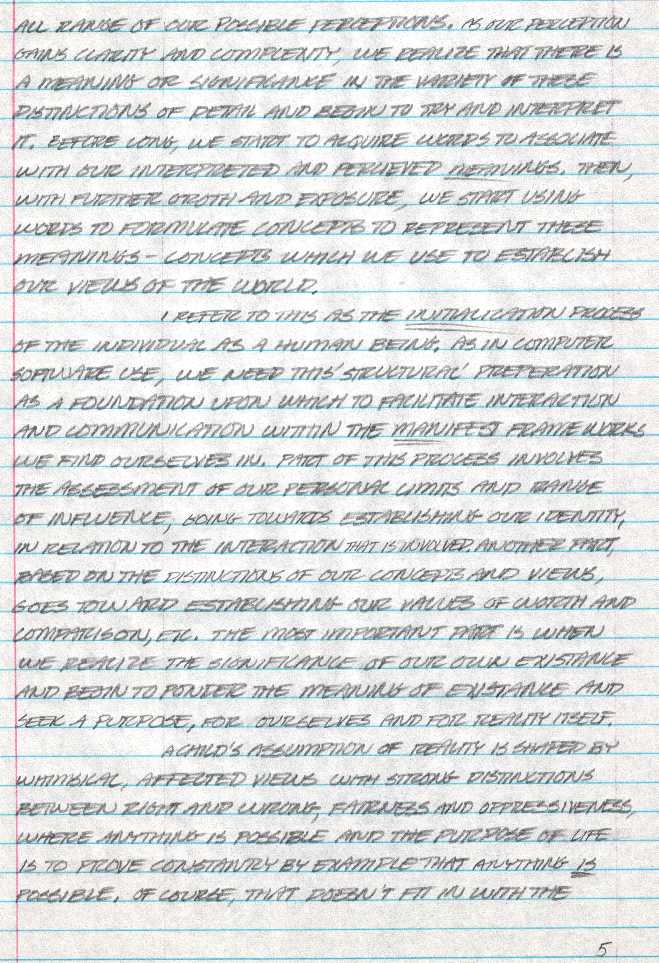 ALL RANGE OF OUR POSSIBLE PERCEPTIONS. AS OUR PERCEPTION
GAINS CLARITY AND COMPLEXITY, WE REALIZE THAT THERE IS
A MEANING OR SIGNIFICANCE IN THE VARIETY OF THESE
DISTINCTIONS OF DETAIL AND BEGIN TO TRY AND INTERPRET
IT. BEFORE LONG, WE START TO ACQUIRE WORDS TO ASSOCIATE
WITH OUR INTERPRETED AND PERCIEVED MEANINGS. THEN,
WITH FURTHER GROTH AND EXPOSURE, WE START USING
WORDS TO FORMULATE CONCEPTS TO REPRESENT THESE
MEANINGS - CONCEPTS WHICH WE USE TO ESTABLISH
OUR VIEWS OF THE WORLD.
I REFER TO THIS AS THE INITIALIZATION PROCESS
OF THE INDIVIDUAL AS A HUMAN BEING. AS IN COMPUTER
SOFTWARE USE, WE NEED THIS 'STRUCTURAL' PREPERATION
AS A FOUNDATION UPON WHICH TO FACILITATE INTERACTION
AND COMMUNICATION WITHIN THE MANIFEST FRAMEWORKS
WE FIND OURSELVES IN. PART OF THIS PROCESS INVOLVES
THE ASSESSMENT OF OUR PERSONAL LIMITS AND RANGE
OF INFLUENCE, GOING TOWARDS ESTABLISHING OUR IDENTITY,
IN RELATION TO THE INTERACTION THAT IS INVOLVED. ANOTHER PART,
BASED ON THE DISTINCTIONS OF OUR CONCEPTS AND VIEWS,
GOES TOWARD ESTABLISHING OUR VALUES OF WORTH AND
COMPARISON, ETC. THE MOST IMPORTANT PART IS WHEN
WE REALIZE THE SIGNIFICANCE OF OUR OWN EXISTANCE
AND BEGIN TO PONDER THE MEANING OF EXISTANCE AND
SEEK A PURPOSE, FOR OURSELVES AND FOR REALITY ITSELF.
A CHILD'S ASSUMPTION OF REALITY IS SHAPED BY
WHIMSICAL, AFFECTED VIEWS WITH STRONG DISTINCTIONS
BETWEEN RIGHT AND WRONG, FAIRNESS AND OPPRESSIVENESS,
WHERE ANYTHING IS POSSIBLE AND THE PURPOSE OF LIFE
IS TO PROVE CONSTANTLY BY EXAMPLE THAT ANYTHING IS
POSSIBLE. OF COURSE, THAT DOESN'T FIT IN WITH THE
5